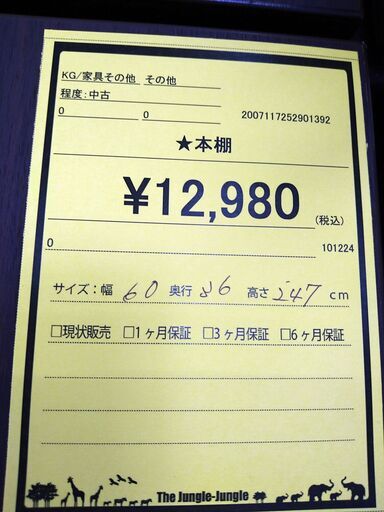 KG/家具その他 その他
程度:中古
0 0 2007117252901392
★本棚
¥12,980(税込)
0 101224
サイズ:幅 60 奥行 36 高さ 247 cm
□現状販売 □1ヶ月保証 □3ヶ月保証 □6ヶ月保証
The Jungle-Jungle